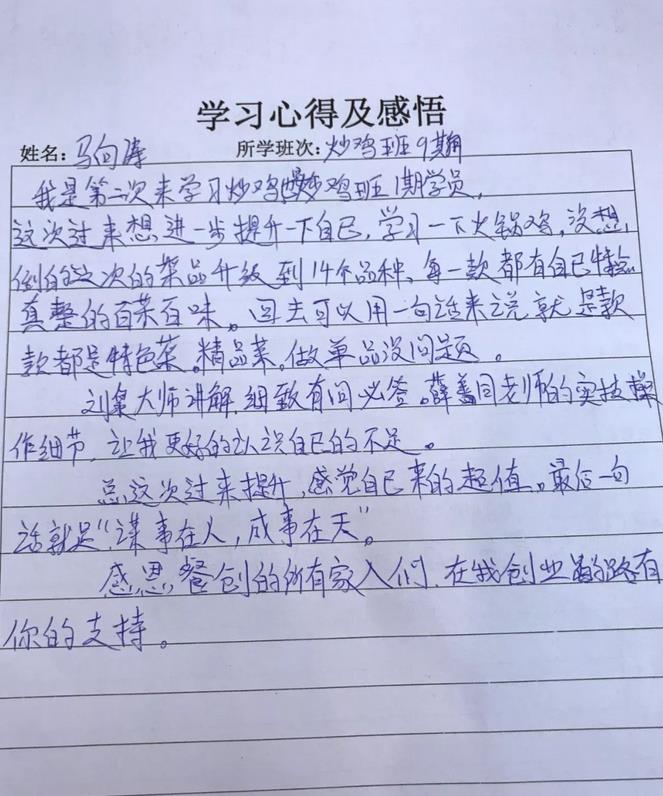 学习心得及感悟
姓名：马向涛 所学班次：炒鸡班9期
我是第二次来学习炒鸡 炒鸡班1期学员，
这次过来想进一步提升一下自已，学习一下火锅鸡，没想，
倒的这次的菜品升级到14个品种、每一款都有自已特点
真整的百菜百味。回去可以用一句话来说就是款
款都是特色菜。精品菜。做单品没问题。
刘 大师讲解，细致有问必答。薛 同老师的实技操
作细节，让我更好的认识自已的不足。
总这次过来提升，感觉自已来的超值。最后一句
话就是“谋事在人，成事在天”。
感恩餐创的所有家人们，在我创业 路有
你的支持。